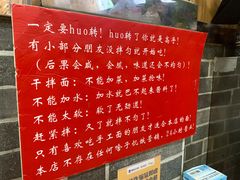 一定要huo转！huo转了你就是高手！
有小部分朋友没拌匀就开始吃！
（后果会咸，会咸，味道还会不均匀！）
干拌面：不能加菜，加菜抢味！
不能加水：加水就巴不起来酱料了！
不能太软：软了无劲道！
赶紧拌：久了就拌不匀了！
只有喜欢吃手工面的朋友才适合本店的面！
本店不存在任何啥子机低营销，